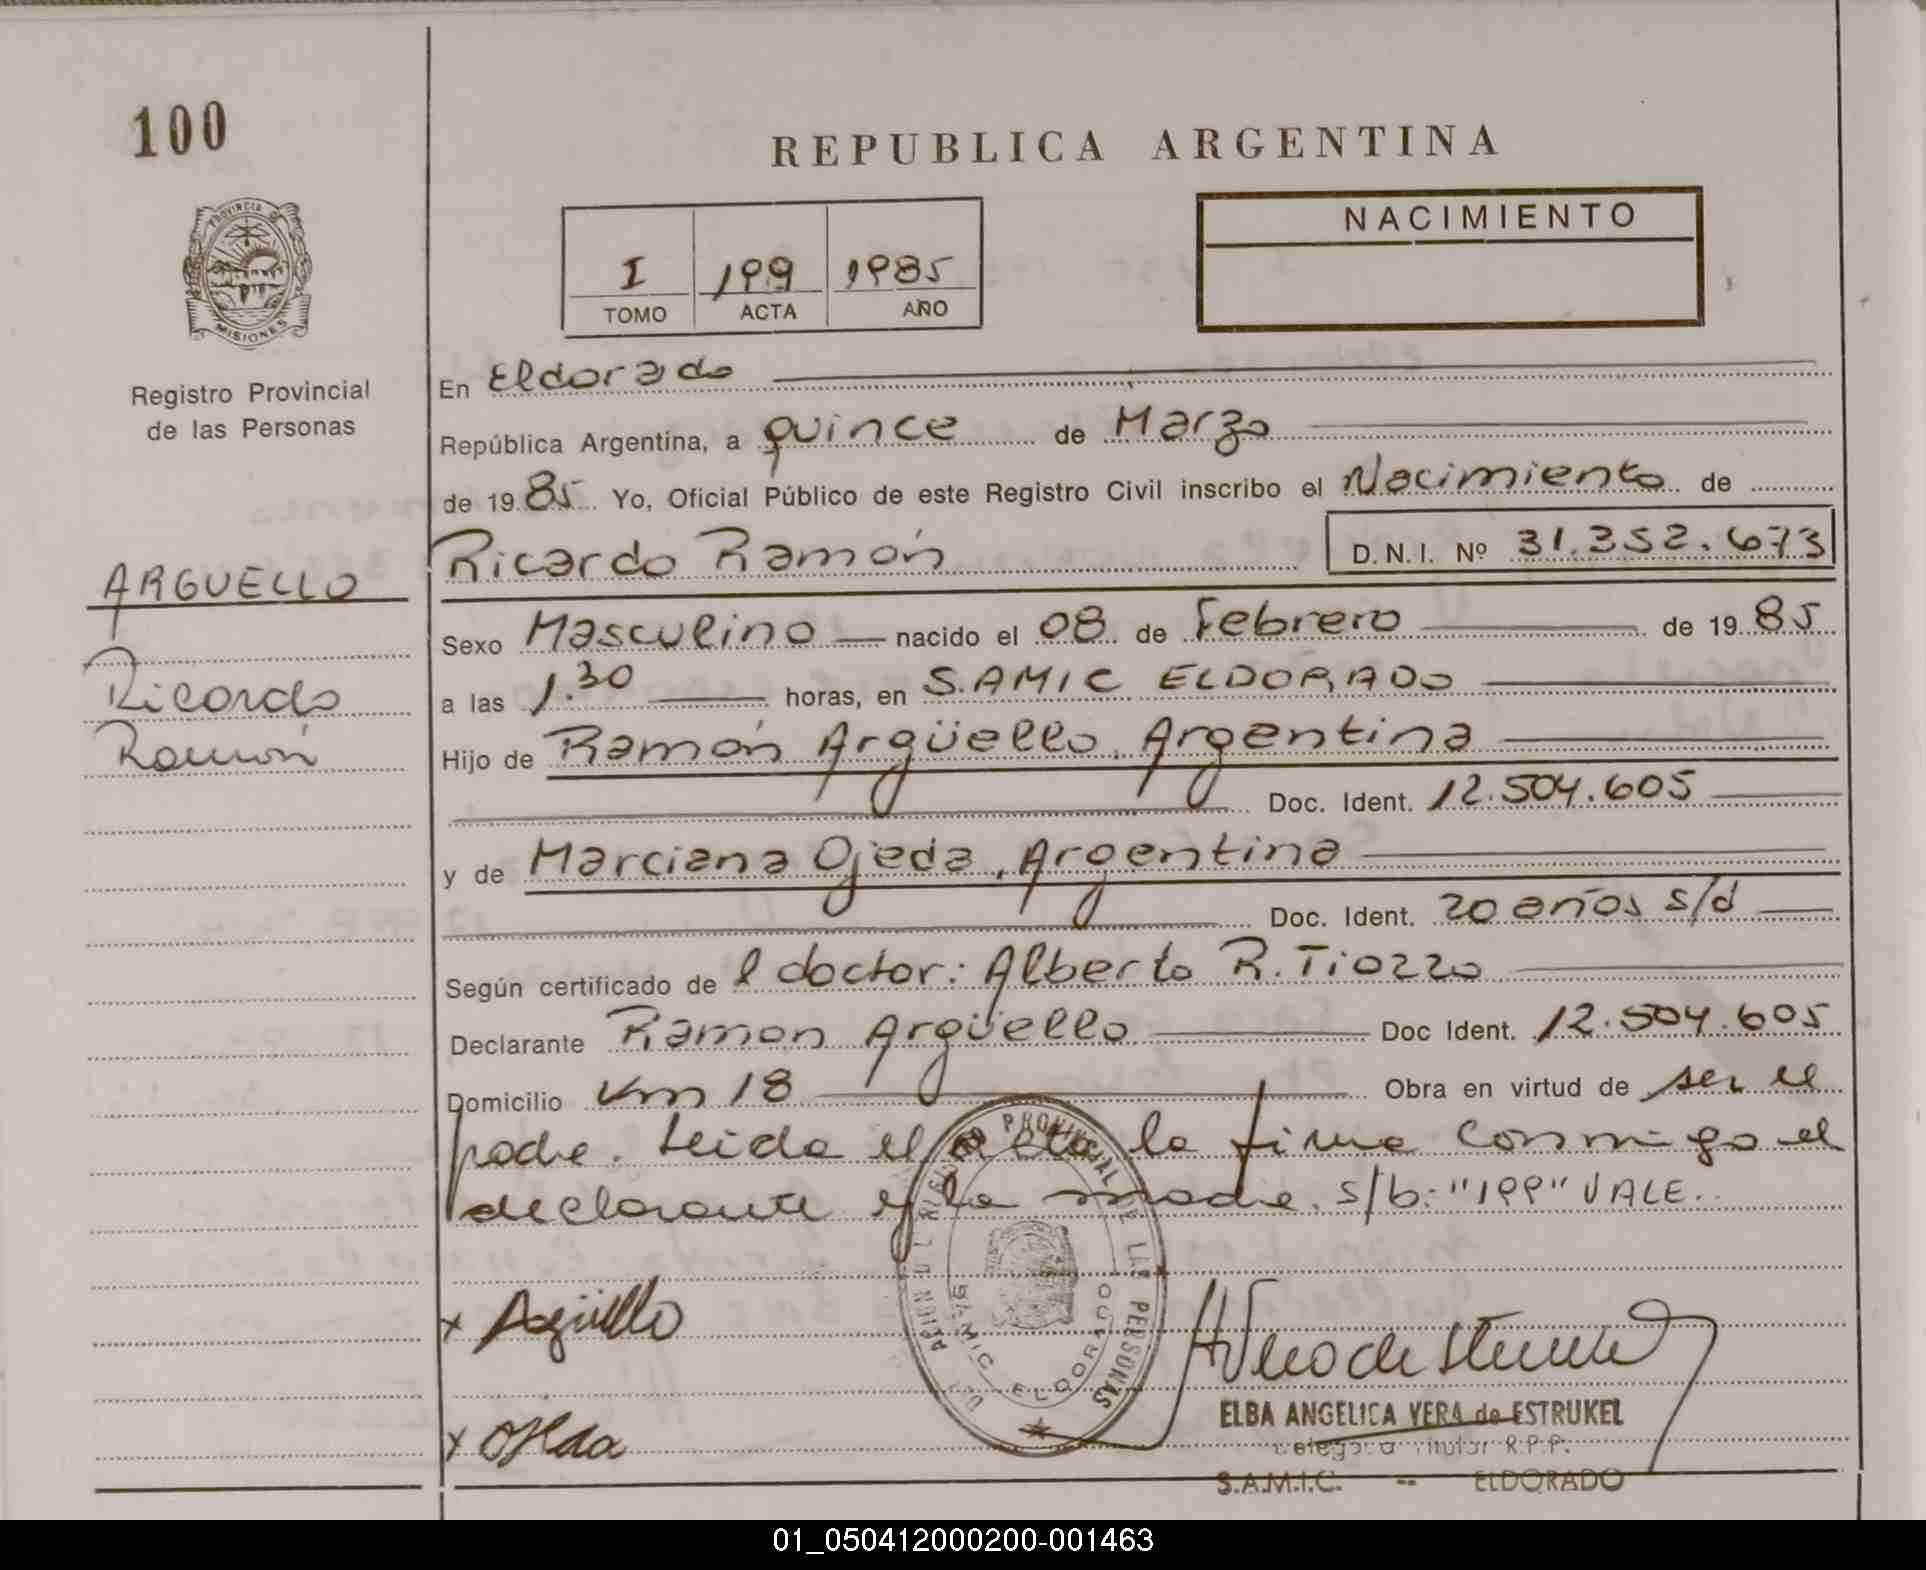 100
REPUBLICA ARGENTINA
PROVINCIA DE
MISIONES
Registro Provincial
de las Personas
I 199 1985
TOMO ACTA AÑO
NACIMIENTO
En Eldorado
República Argentina, a quince de Marzo
de 1985 Yo, Oficial Público de este Registro Civil inscribo el Nacimiento de
ARGUELLO
Ricardo
Ramón
Ricardo Ramón D.N.I. Nº 31.352.673
Sexo Masculino nacido el 08 de Febrero de 1985
a las 1.30 horas, en S.AMIC ELDORADO
Hijo de Ramón Argüello, Argentina
Doc. Ident. 12.504.605
y de Marciana Ojeda, Argentina
Doc. Ident. 20 años s/d
Según certificado de l doctor: Alberto R. Tiozzo
Declarante Ramon Argüello Doc Ident. 12.504.605
Domicilio Km 18 Obra en virtud de ser el
padre. Leida el acta la firma conmigo el
declarante y la madre. s/b: "199" VALE.
PROVINCIAL DE LAS PERSONAS
SAMIC ELDORADO
x Argüello
x Ojeda
ELBA ANGELICA VERA de ESTRUKEL
Delegada Titular R.P.P.
S.A.M.I.C. -- ELDORADO
01_050412000200-001463